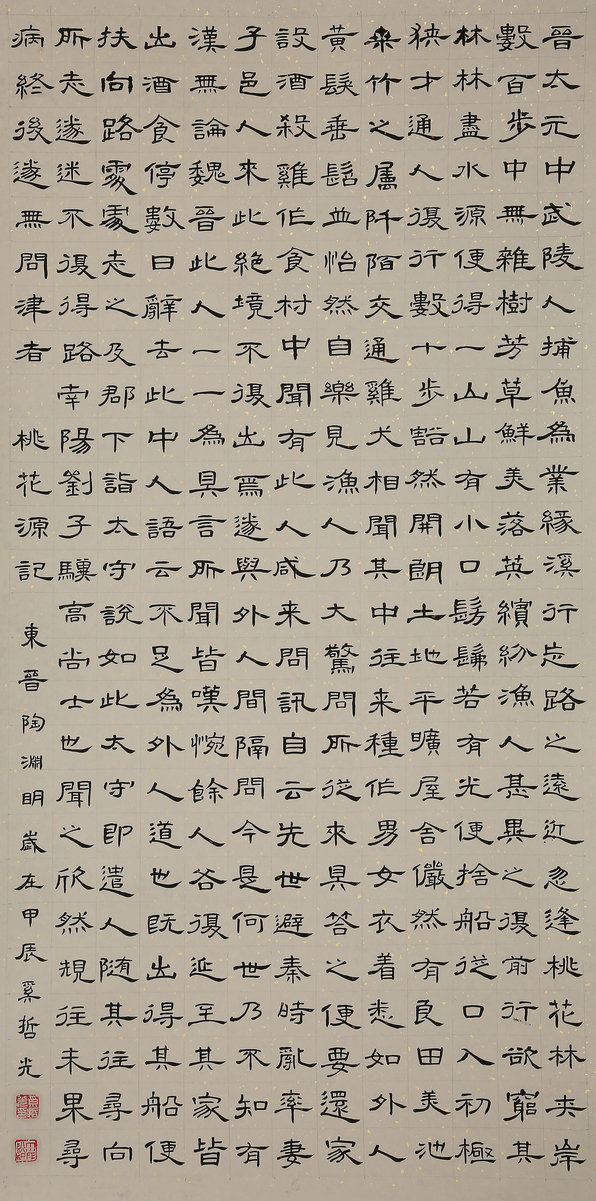 晉太元中武陵人捕魚為業緣溪行忘路之遠近忽逢桃花林夾岸
數百步中無雜樹芳草鮮美落英繽紛漁人甚異之復前行欲窮其
林林盡水源便得一山山有小口髣髴若有光便捨船從口入初極
狹才通人復行數十步豁然開朗土地平曠屋舍儼然有良田美池
桑竹之屬阡陌交通雞犬相聞其中往来種作男女衣着悉如外人
黃髮垂髫並怡然自樂見漁人乃大驚問所從來具答之便要還家
設酒殺雞作食村中聞有此人咸来問訊自云先世避秦時亂率妻
子邑人來此絕境不復出焉遂與外人間隔問今是何世乃不知有
漢無論魏晉此人一一為具言所聞皆嘆惋餘人各復延至其家皆
出酒食停數日辭去此中人語云不足為外人道也既出得其船便
扶向路處處志之及郡下詣太守說如此太守即遣人隨其往尋向
所志遂迷不復得路南陽劉子驥高尚士也聞之欣然規往未果尋
病終後遂無問津者 桃花源記 東晉陶淵明歲在甲辰奚哲光